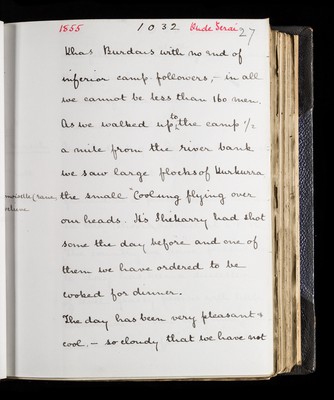 1855 1032 Bude Serai 27
Khas Burdars with no end of
inferior camp-followers, - in all
we cannot be less than 160 men.
As we walked up to the camp 1/2
a mile from the river bank
we saw large flocks of Kurkurra
the small "Coolung flying over
our heads. H's Shekarry had shot
some the day before and one of
them we have ordered to be
cooked for dinner.
The day has been very pleasant &
cool. - so cloudy that we have not
Crane,